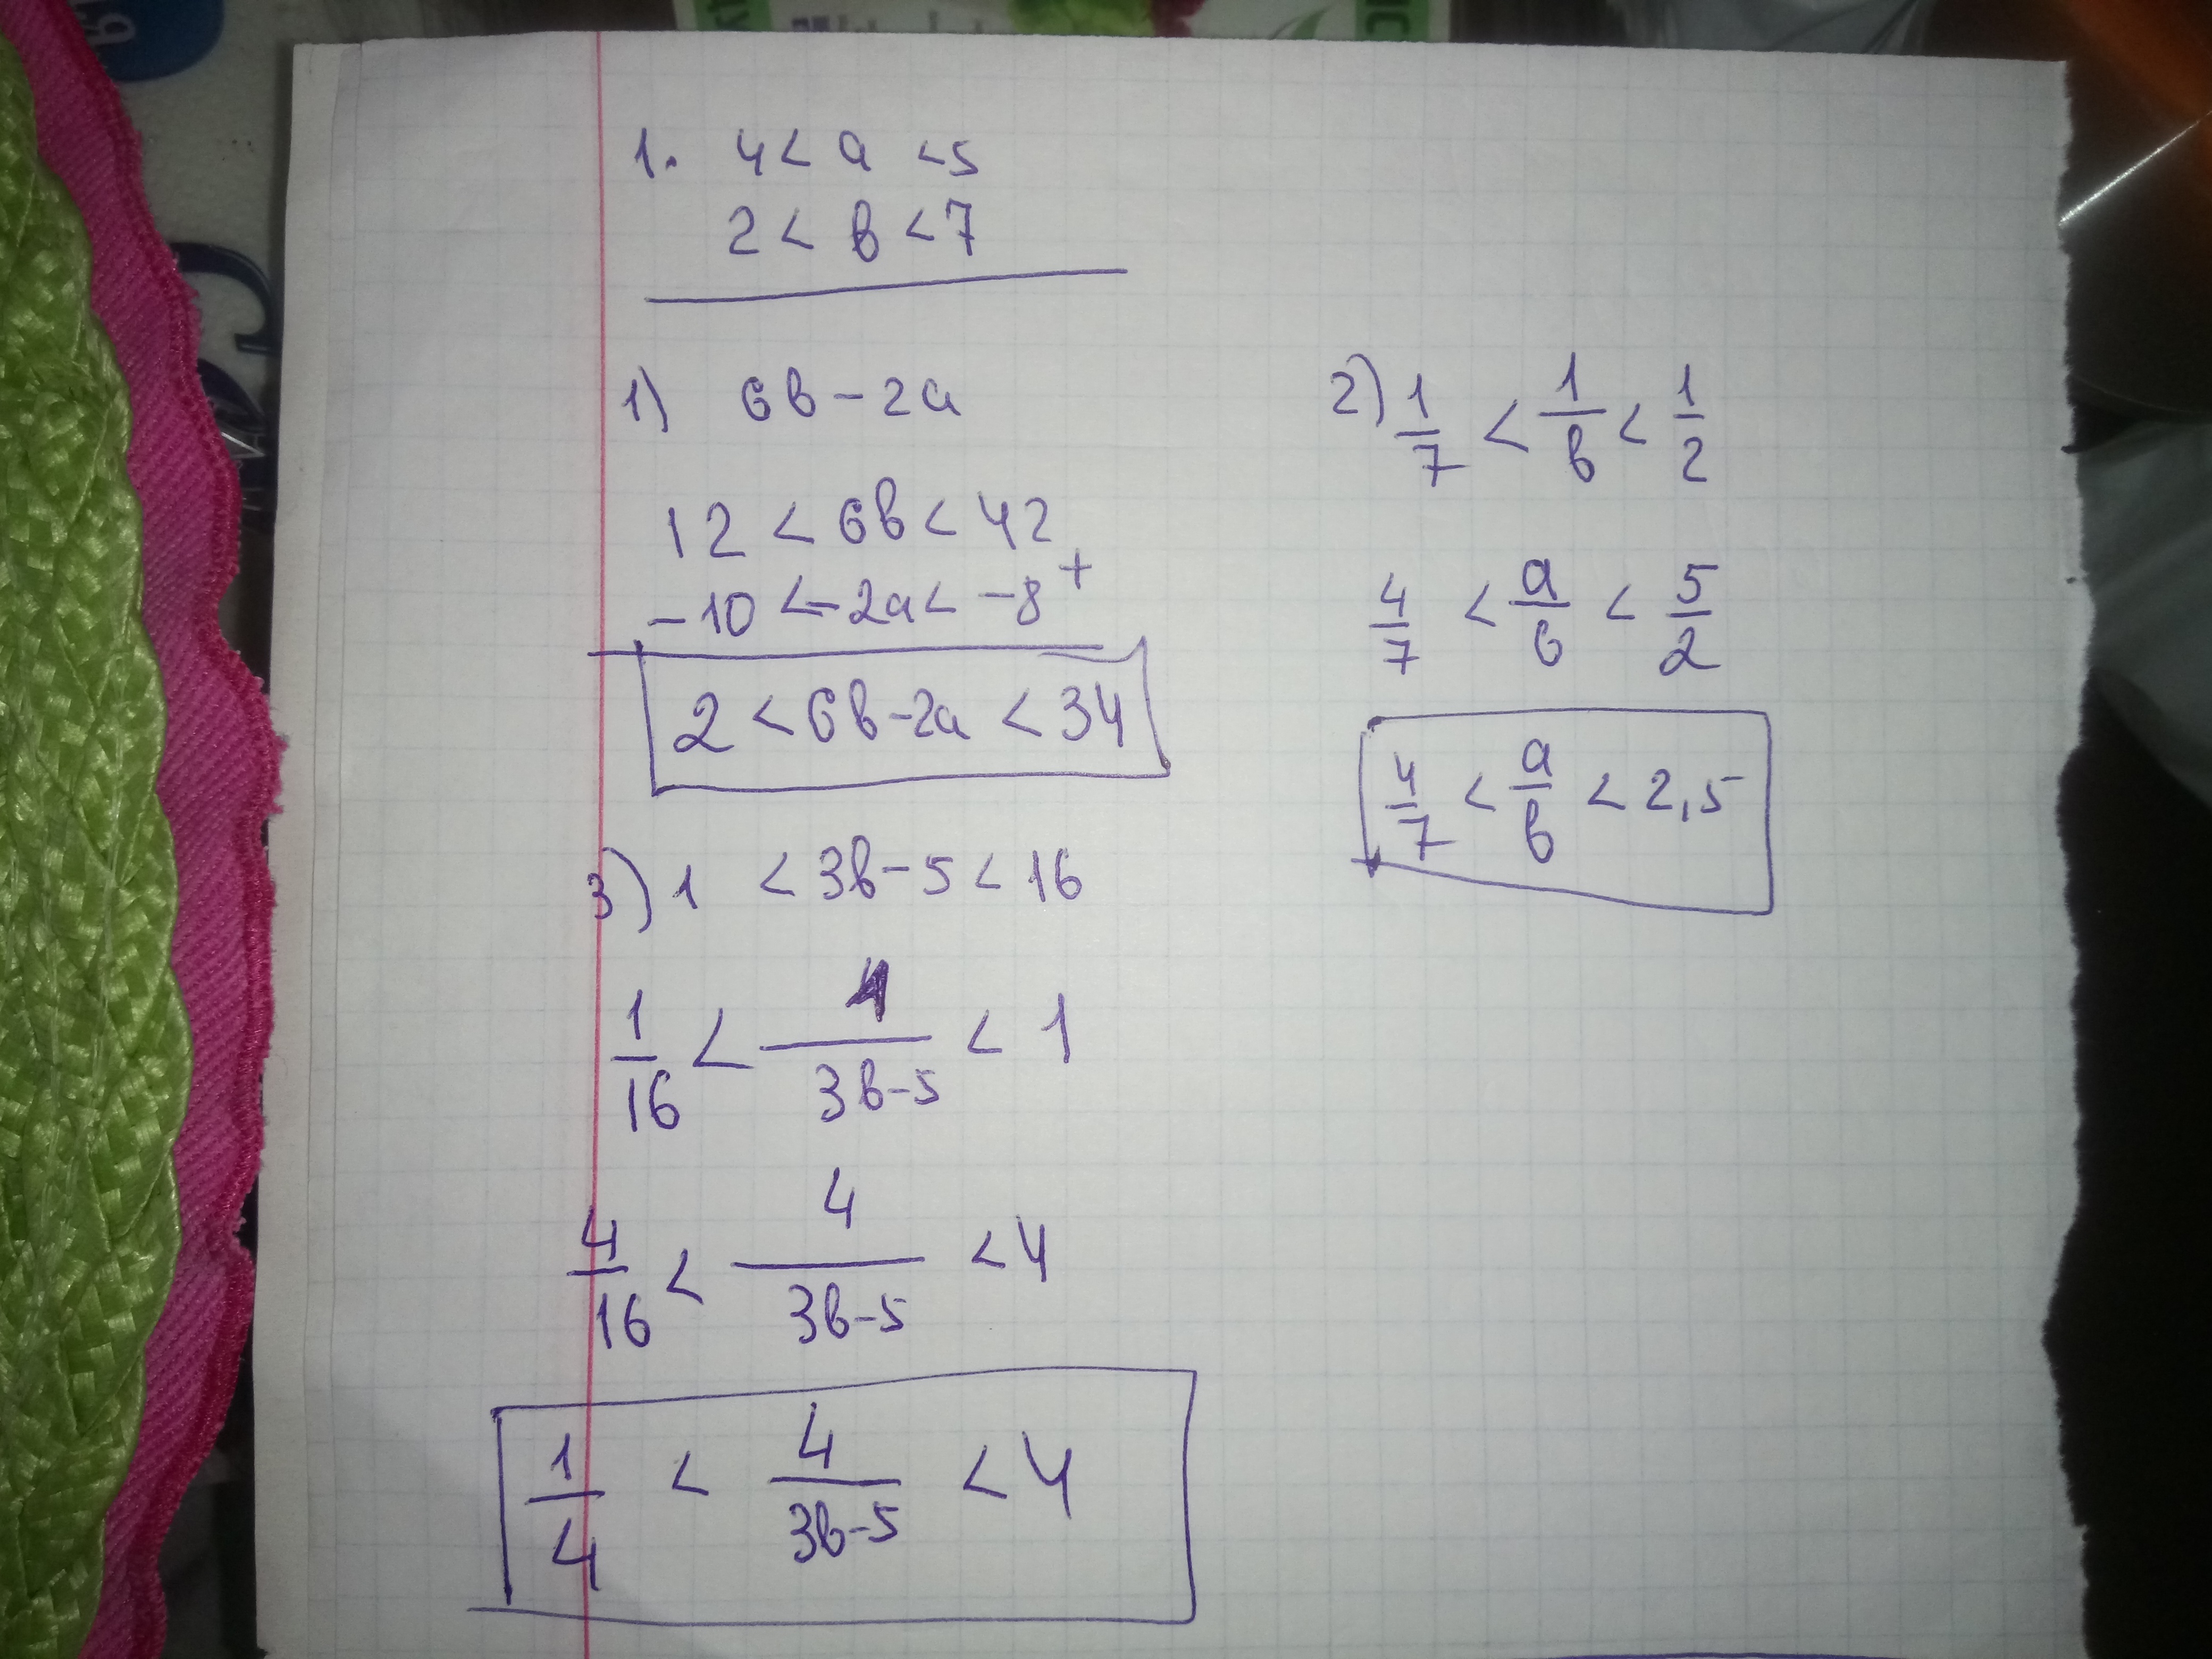 1. 4 < a < 5
2 < b < 7
1) 6b - 2a
12 < 6b < 42
+
-10 < -2a < -8
2 < 6b - 2a < 34
2) 1/7 < 1/b < 1/2
4/7 < a/b < 5/2
4/7 < a/b < 2,5
3) 1 < 3b - 5 < 16
1/16 < 1/(3b-5) < 1
4/16 < 4/(3b-5) < 4
1/4 < 4/(3b-5) < 4